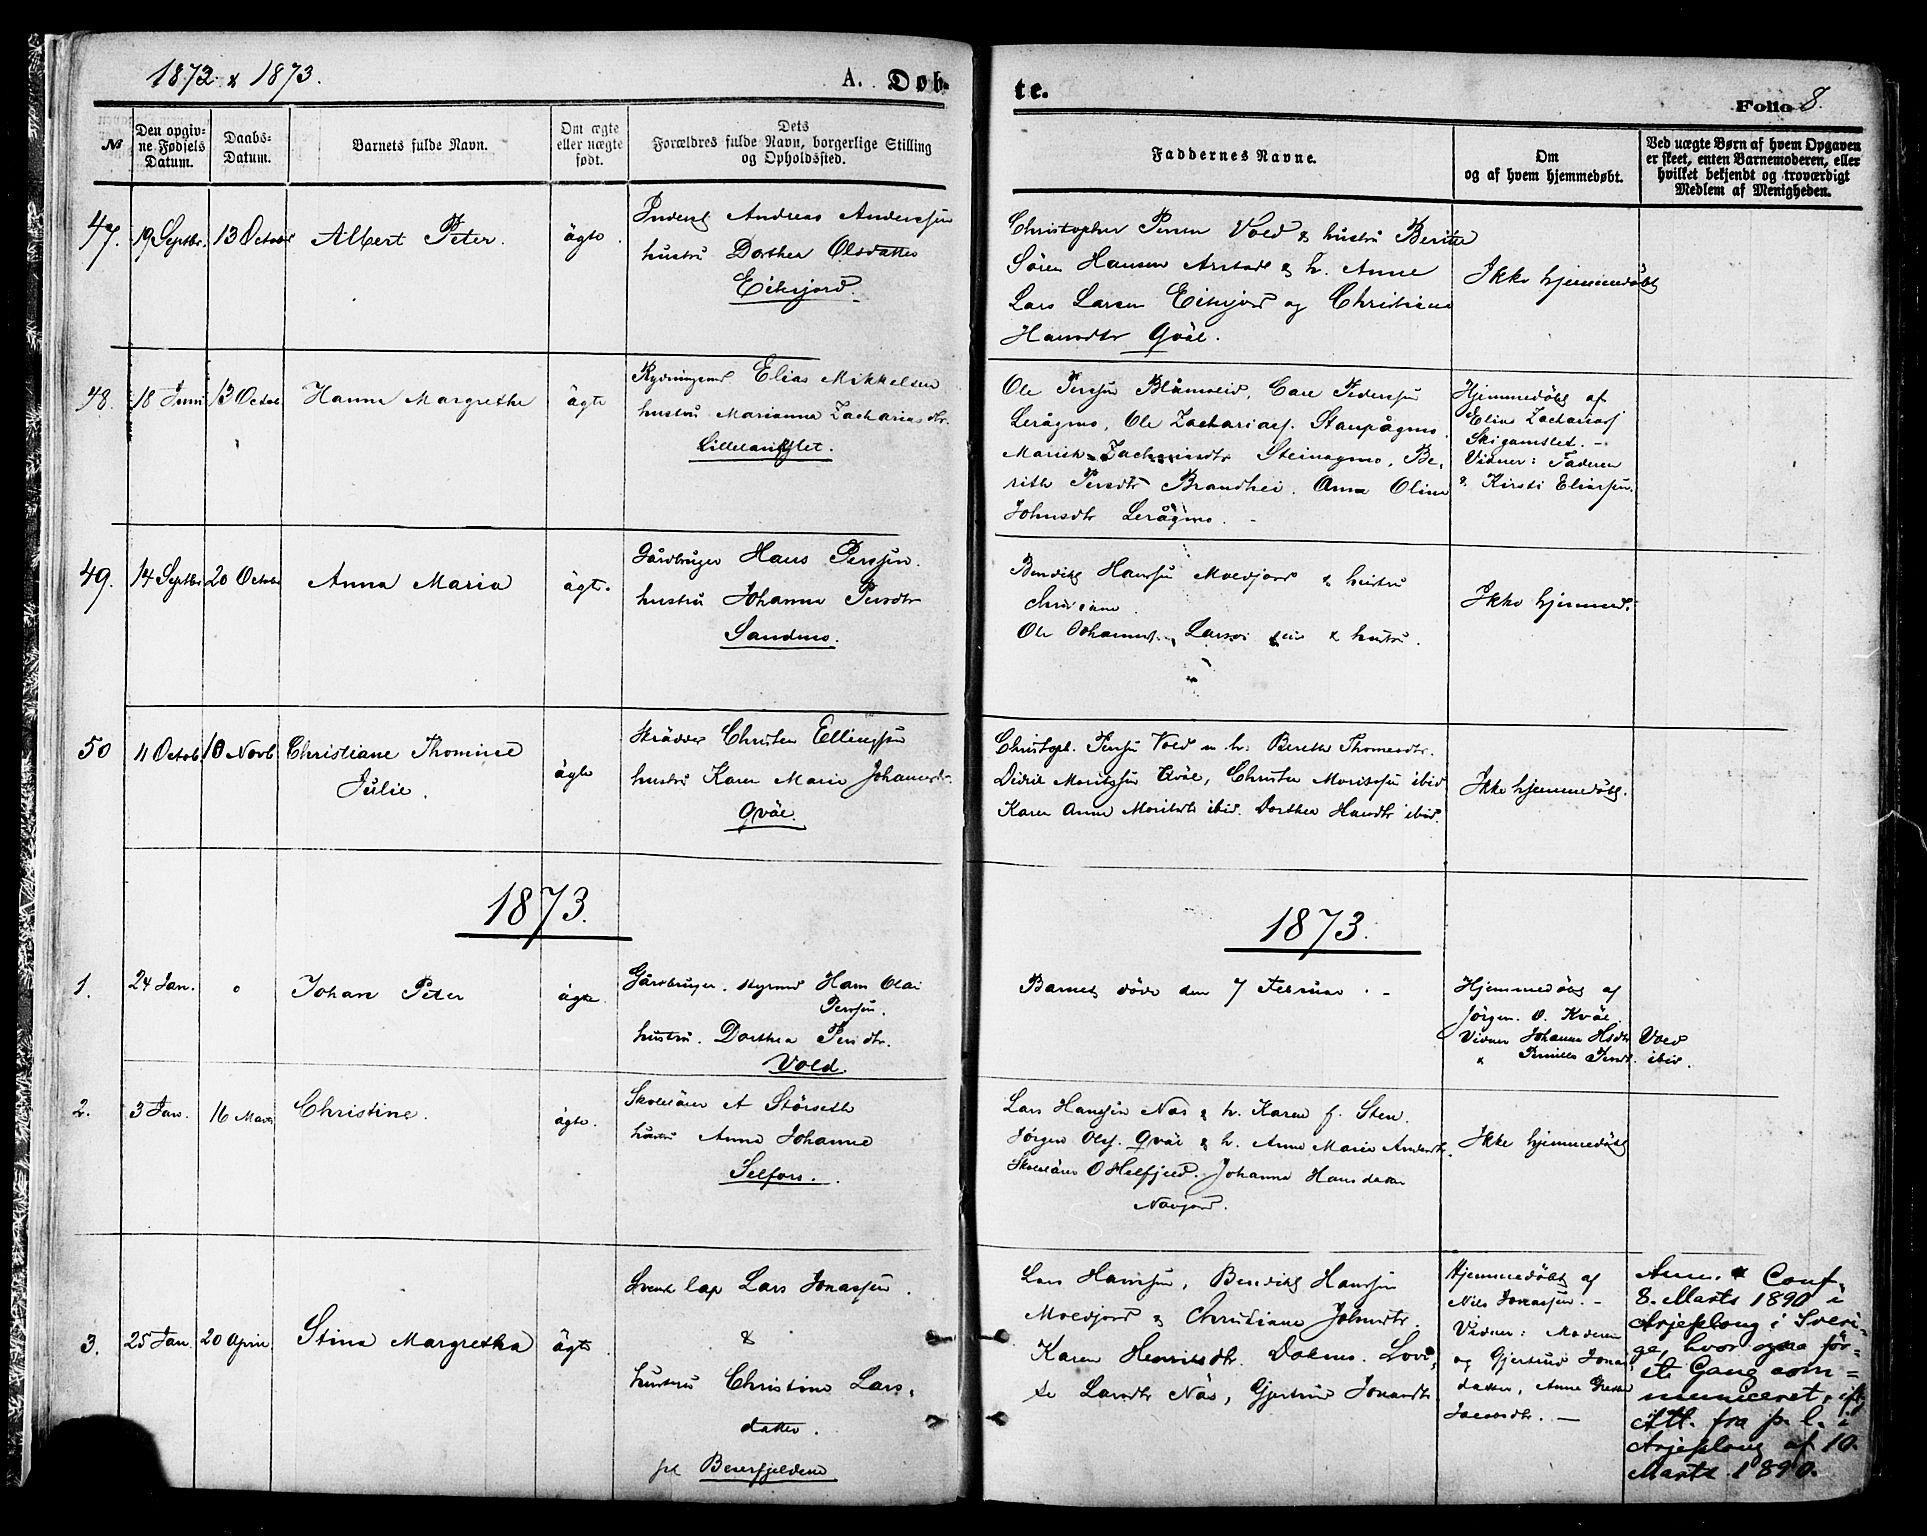 1872 & 1873.
A. Døb-
te.
Folio 8.
№
Den opgiv-
ne Fødsels
Datum.
Daabs-
Datum.
Barnets fulde Navn.
Om ægte
eller uægte
født.
Dets
Forældres fulde Navn, borgerlige Stilling
og Opholdsted.
Faddernes Navne.
Om
og af hvem hjemmedøbt.
Ved uægte Børn af hvem Opgaven
er skeet, enten Barnemoderen, eller
hvilket bekjendt og troværdigt
Medlem af Menigheden.
47.
19 Septbr.
13 Octobr
Albert Peter.
ägte.
Andreas Anderssen
hustru Dorthea Olsdatter
Eiterjord.
Christopher Persen Vold & hustru Beritte
Sören Hansen Arstad & h. Anne
Lars Larsen Eiterjord og Christiane
Hansdtr Qväl.
Ikke hjemmedöbt
48.
18 Juni
13 Octob
Hanna Margrethe
ägte
Rydningsmd Elias Mikkelsen
hustru Marianna Zachariasdtr.
Ole Perssen Blåmoeid, Care Pederssen
Lerågmo, Ole Zachariass. Staupågmo.
Zachariasdtr Steinagmo, Be-
rith Persdtr Brandhei. Anna Oline
Johnsdtr Lerågmo. -
Hjemmedöbt af
Elias Zachariass
Skigamslet. -
Vidner: Faderen
& Kirsti Eliassen.
49.
14 Septbr
20 Octobr
Anna Maria
ägte.
Gårdbruger Hans Perssen.
hustru Johanna Persdtr
Sandmo.
Bendikt Hanssen Moldjord & hustru
Christiane.
Ole Johanness. & hustru.
Ikke hjemmed.
50
11 Octob
10 Novb.
Christiane Thomine
Julie.
ägte
Skrädder Christen Ellingssen
hustru Karen Marie Johannesdtr.
Qväl.
Christoph. Perssen Vold m h: Bereth Thomesdtr.
Didrik Moritssen Qväl, Christen Moritssen ibid
Karen Anne Moritsdtr ibid. Dorthea Hansdtr ibid.
Ikke hjemmedöbt.
1873.
1873.
1.
24 Jan.
"
Johan Peter
ägte.
Gårdbruger. Hans Olai
Perssen.
hustru. Dorthea Persdtr.
Vold.
Barnet döde den 7 Februar. -
Hjemmedöbt af
Jörgen. O. Kväl.
Vidner Johanna Hsdtr Vold
" Pernille Persdt. ibid.
2.
3 Jan.
16 Marts
Christine.
ägte.
Skolelärer A Störseth
hustru Anna Johanne
Selfors.
Lars Hanssen Näs & h. Karen f. Sten.
Jörgen Olss. Qväl & h. Anne Marie Andersdtr.
Skolelärer O Helfjeld. Johanna Hansdatter
Navjord.
Ikke hjemmedöbt
3.
25 Jan.
20 April
Stina Margretha
ägte.
Svensk lap Lars Jonassen.
&
hustru Christine Lars-
datter.
på Beierfjeldene
Lars Hanssen, Bendikt Hanssen
Moldjord & Christiane Johnsdtr.
Karen Henriksdtr. Dokmo. Lovi-
se Larsdtr Näs, Gjertrud Jonasdtr
Hjemmedöbt af
Nils Jonassen. -
Vidner: Moderen
og Gjertrud Jonas-
datter, Anne Grethe
Jacobsdtr. -
Anm. Conf.
8. Marts 1890 i
Arjeplong i Sveri-
ge, hvor ogsaa för-
ste Gang com-
municeret, ifl.
Att. fra p. l. i
Arjeplong af 10.
Marts 1890.